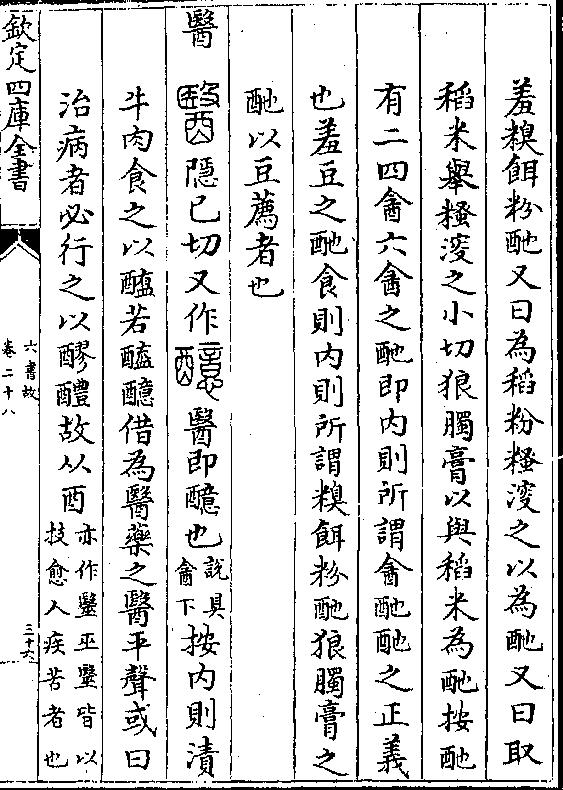 羞糗餌粉酏又曰為稻粉糔溲之以為酏又曰取
稻米舉糔溲之小切狼臅膏以與稻米為酏按酏
有二四酓六酓之酏即内則所謂酓酏酏之正義
也羞豆之酏食則内則所謂糗餌粉酏狼臅膏之
酏以豆薦者也
醫 隱已切又作 醫即醷也說具酓下按内則漬
牛肉食之以醢若醯醷借為醫藥之醫平聲或曰
治病者必行之以醪醴故从酉亦作毉巫毉皆以技愈人疾苦者也
欽定四庫全書
六書故
卷二十八
三十六